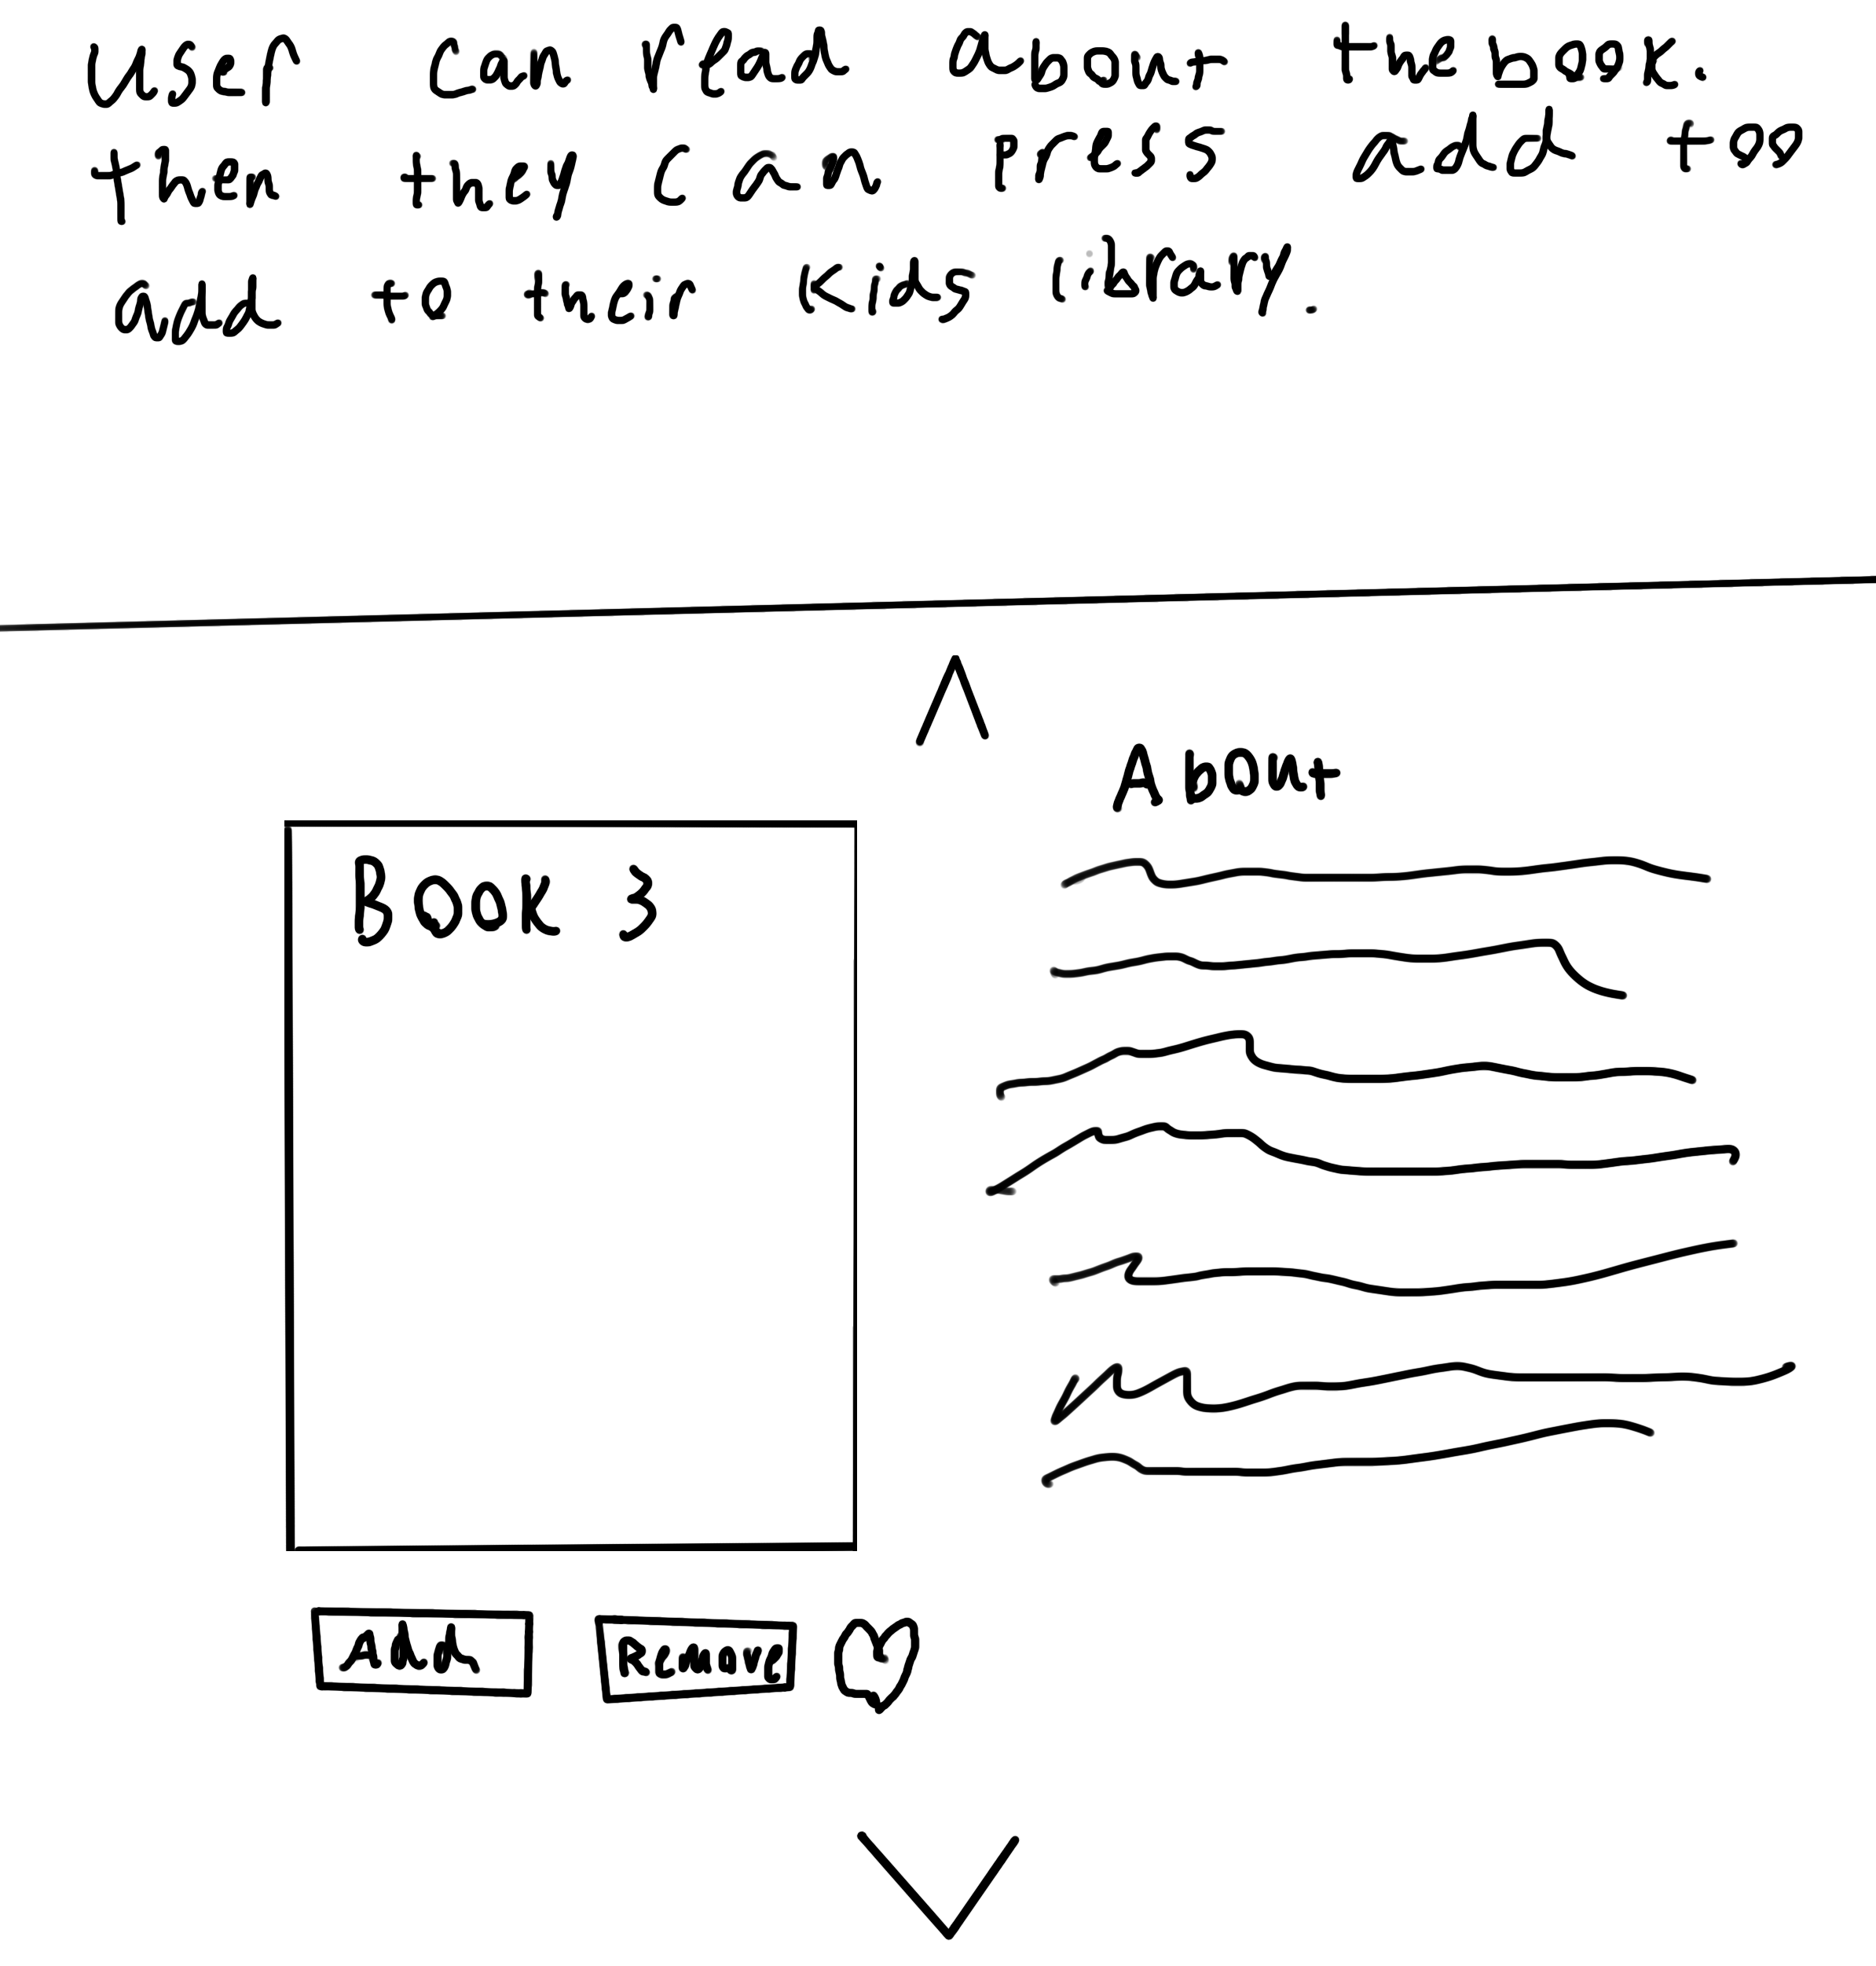 user can read about the book.
then they can press add too
add to their kids library.
About
BOOK 3
Add
Remove